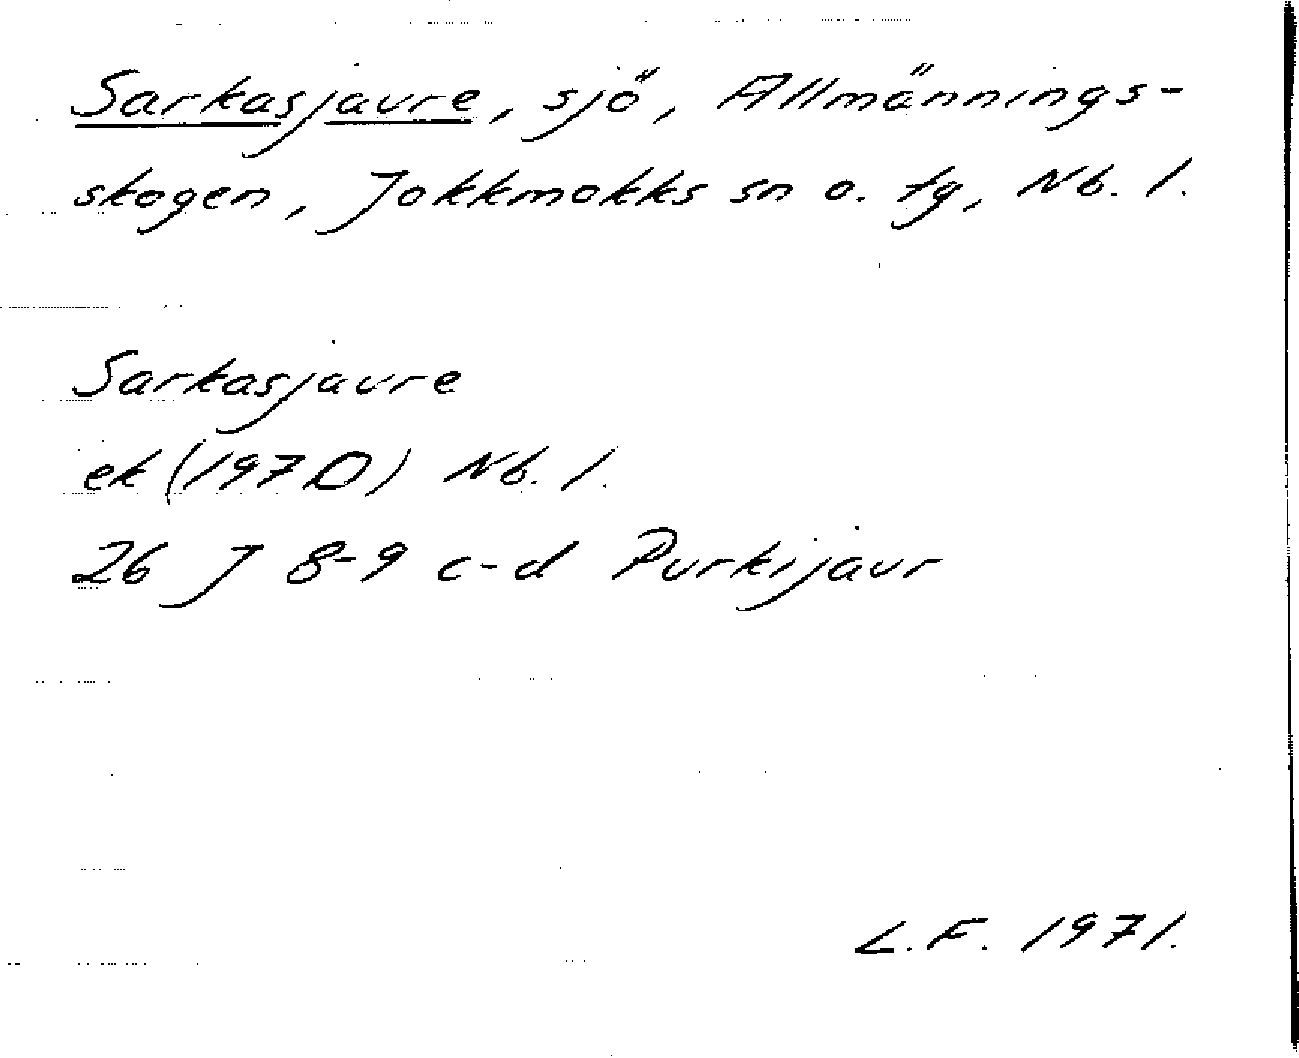 Sarkasjaure, sjö, Allmännings-
skogen, Jokkmokks sn o. tg, Nb. l.
Sarkasjaure
ek (1970) Nb. l.
26 J 8-9 c-d Purkijaur
L.F. 1971.